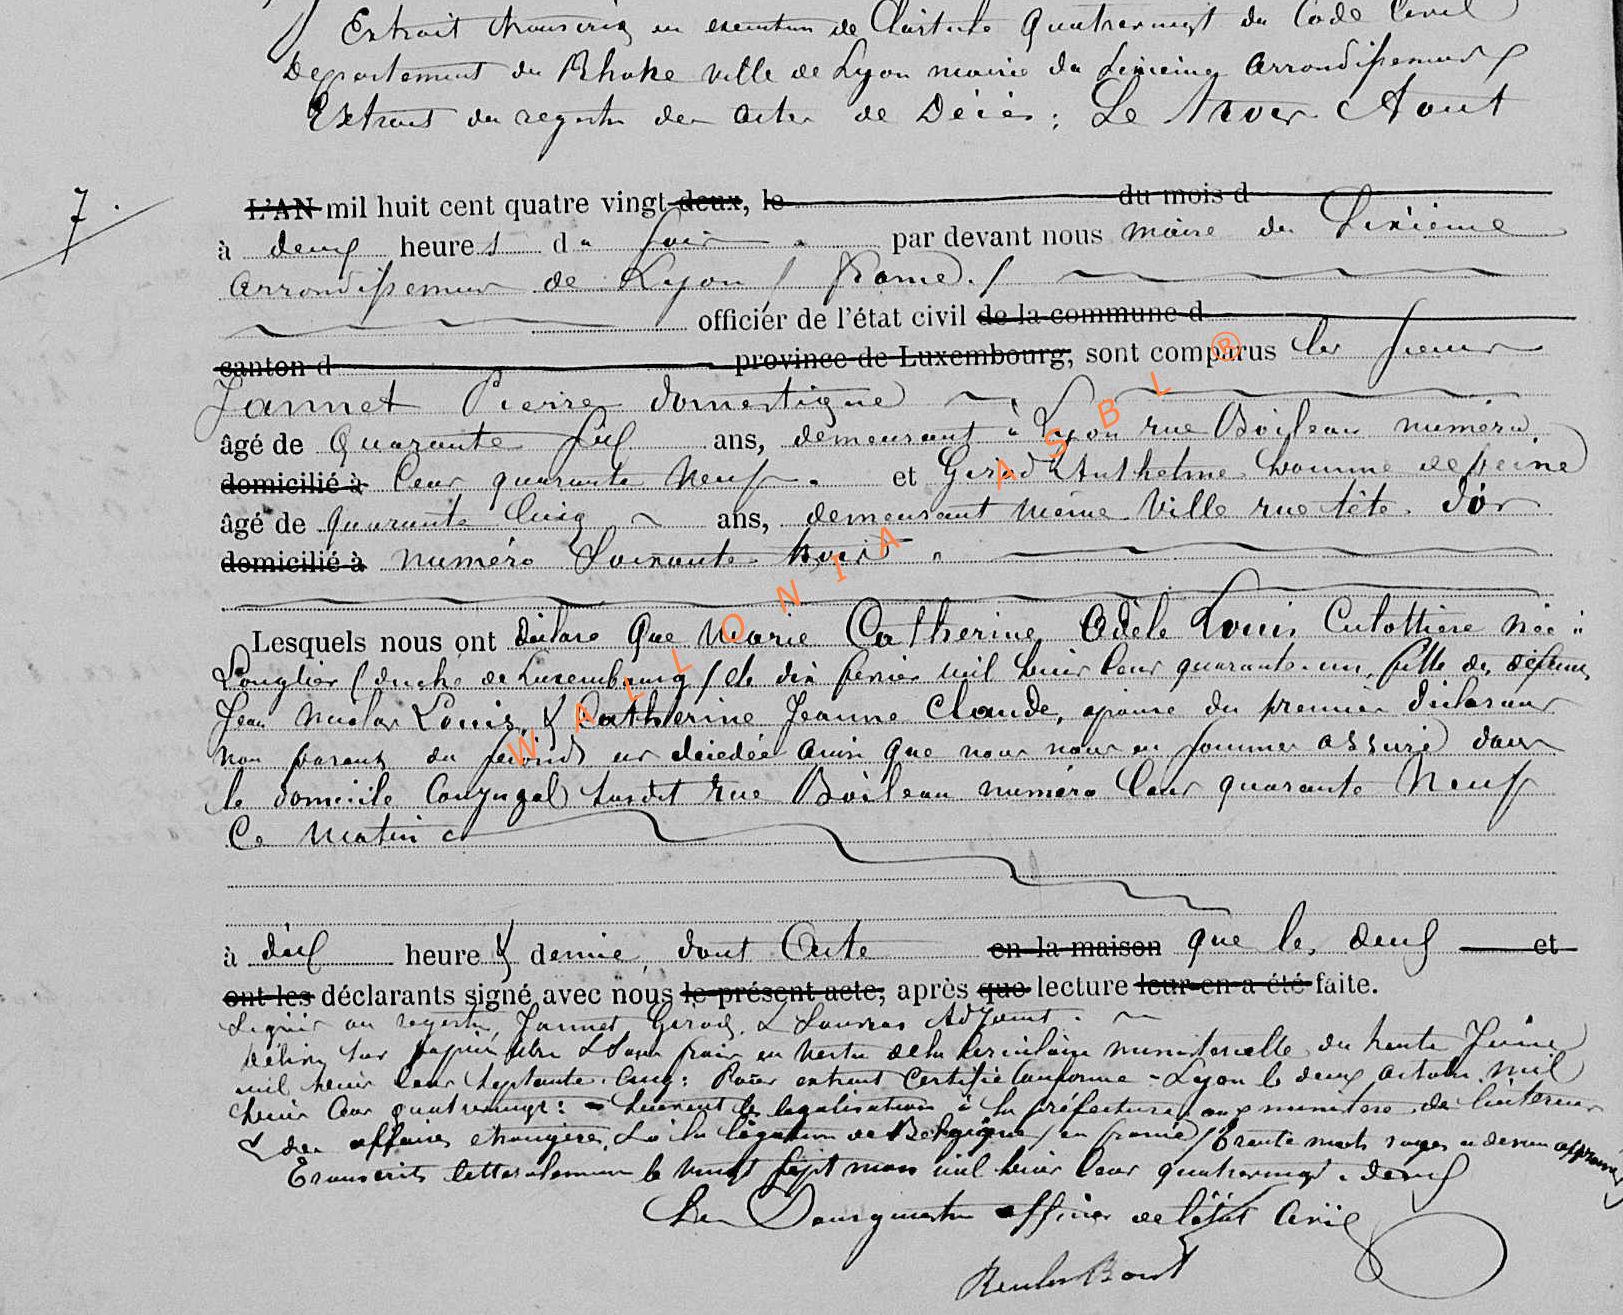 Extrait transcrit en execution de l'article quatrevingt du Code Civil
Departement du Rhône ville de Lyon mairie du sixième arrondissement
Extrait du registre des actes de Décès : Le trois Aout
7.
L'AN mil huit cent quatre vingt deux, le du mois d
à deux heures du soir par devant nous maire du Sixième
arrondissement de Lyon (france)
officier de l'état civil de la commune d
canton d province de Luxembourg, sont comparus les sieurs
Jannet Pierre domestique
âgé de quarante six ans, demeurant à Lyon rue Boileau numéro
domicilié à Cent quarante Neuf. et Girod Anthelme homme de peine
âgé de quarante cinq ans, demeurant même Ville rue tête d'or
domicilié à numéro Soixante huit
Lesquels nous ont déclaré que Marie Catherine Adèle Louis Culottière née à
Longlier (duché de Luxembourg) le dix fevrier mil huit cent quarante un, fille de défunts
Jean Nicolas Louis & Catherine Jeanne Claude, épouse du premier déclarant
non parent du second est décédée ainsi que nous nous en sommes assuré dans
le domicile Conjugal susdit rue Boileau numéro Cent quarante Neuf
Ce matin
à dix heure & demie, dont Acte en la maison que les deux et
ont les déclarants signé avec nous le présent acte, après que lecture leur en a été faite.
Signés au registre, Jannet Girod, Adjoint.
Délivré sur papier libre & sans frais en vertu de la circulaire ministerielle du trente Juin
mil huit cent septante cinq : Pour extrait certifié conforme - Lyon le deux octobre mil
huit cent quatrevingt : Suivent les legalisations à la préfecture, aux ministere de l'intérieur
& des affaires etrangères, & à la légation de Belgique (en france) trente mots rayés ci dessus approuvés
Transcrits litteralement le vingt sept mars mil huit cent quatrevingt deux
Le Bourgmestre officier de l'état Civil
WALLONIA ASBL ®